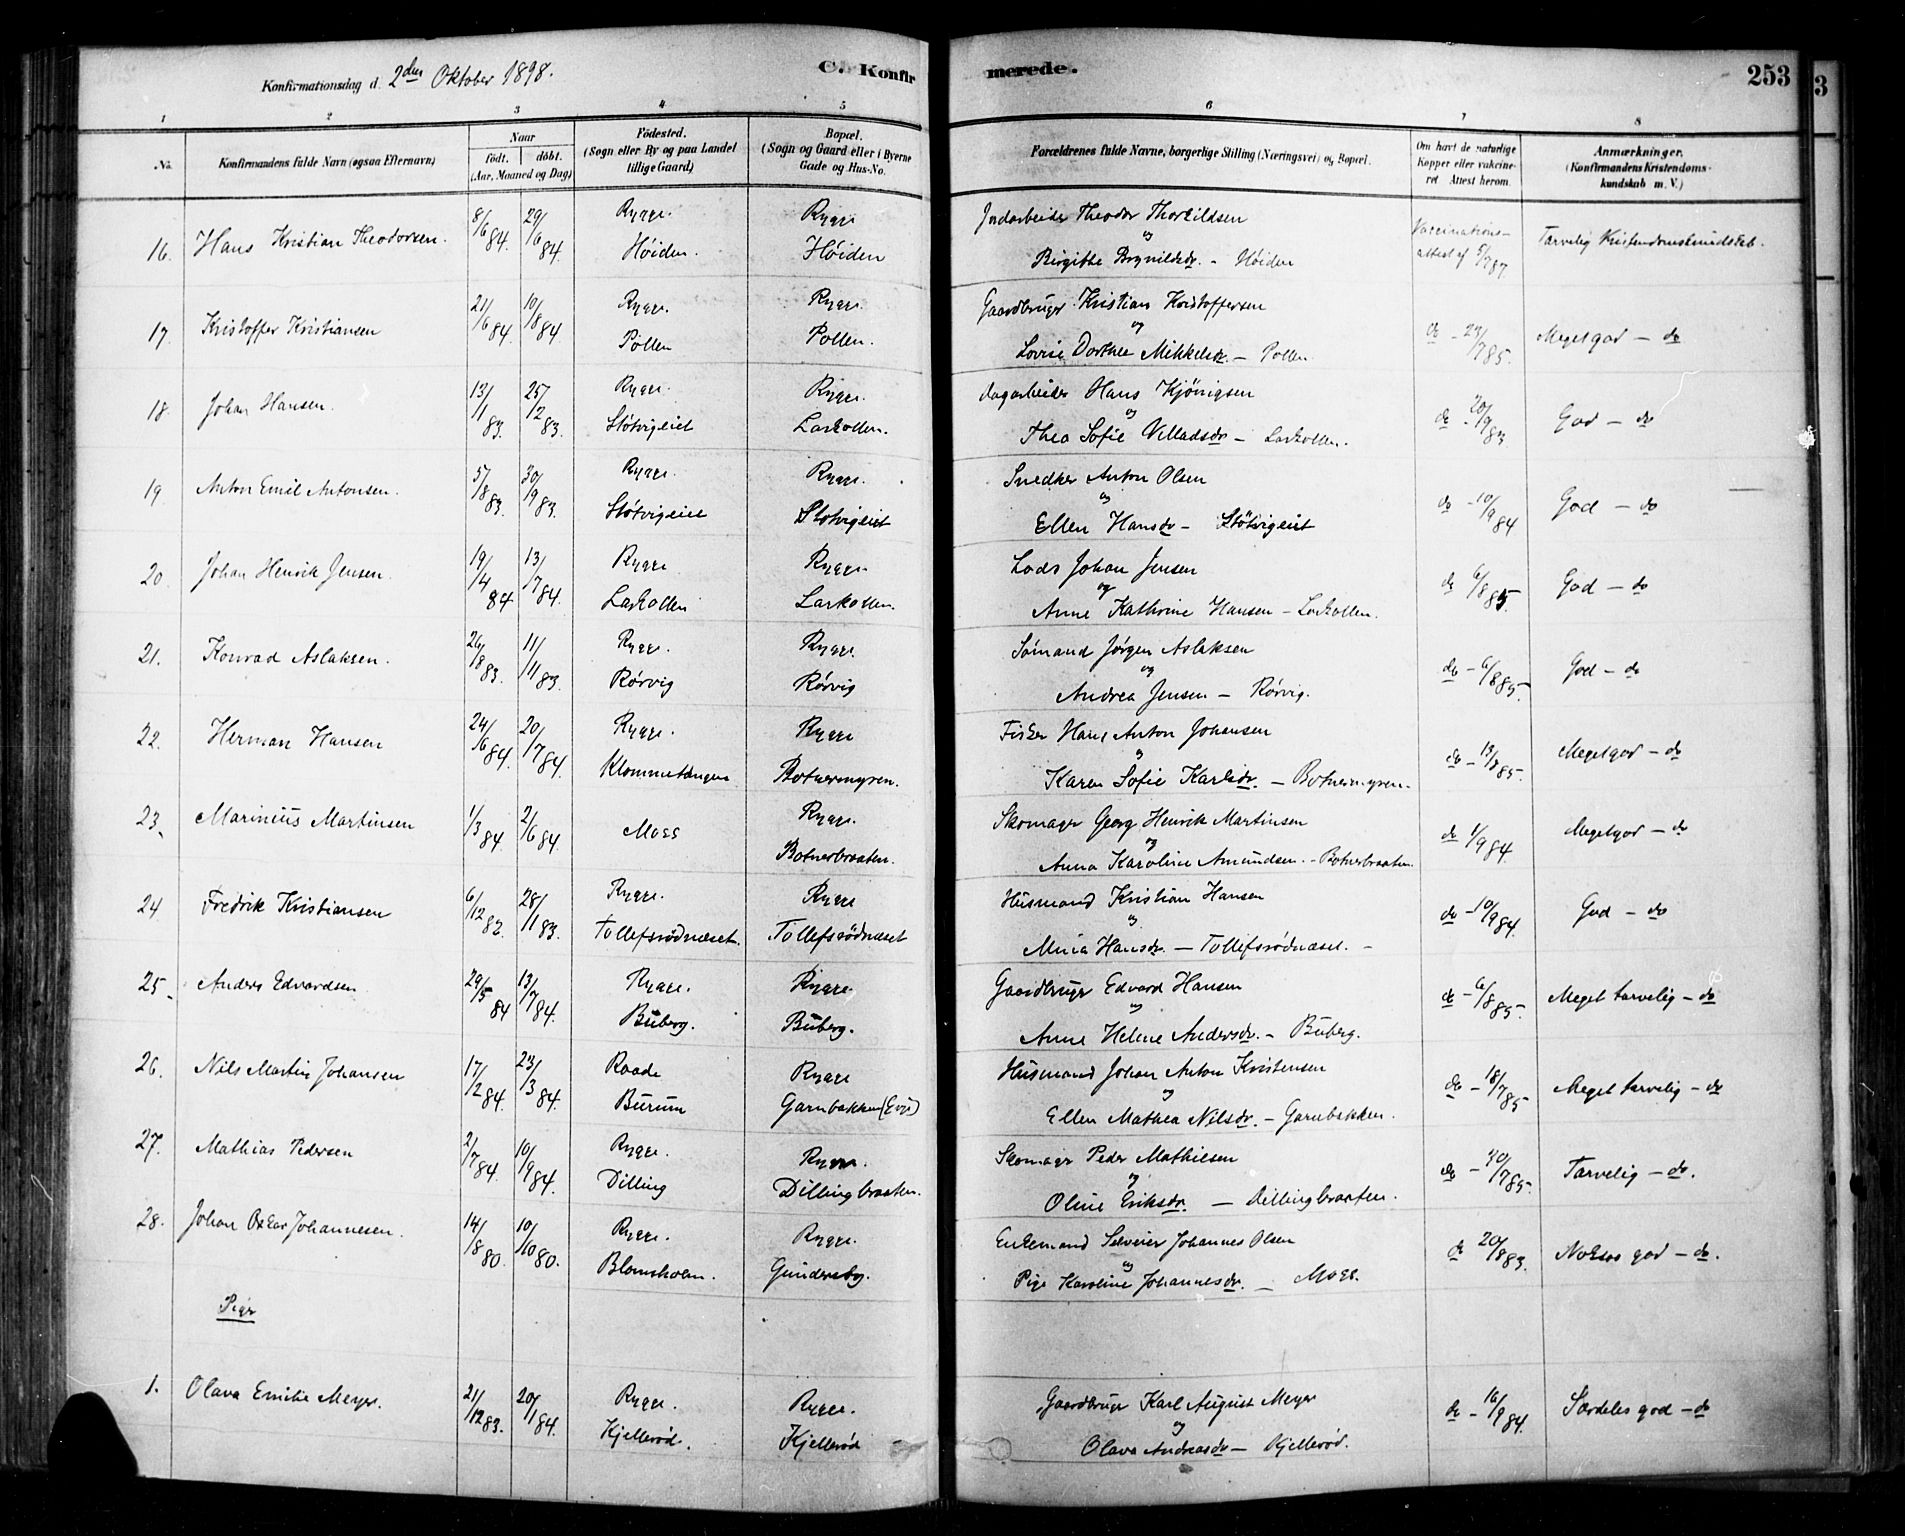 Konfirmationsdag d. 2den Oktober 1898.
C. Konfirmerede.
253
1 2 3 4 5 6 7 8
No.
Konfirmandens fulde Navn (ogsaa Efternavn)
Naar
født. døbt.
(Aar, Maaned og Dag)
Fødested.
(Sogn eller By og paa Landet
tillige Gaard)
Bopæl.
(Sogn og Gaard eller i Byerne
Gade og Hus-No.
Forældrenes fulde Navne, borgerlige Stilling (Næringsvei) og Bopæl.
Om havt de naturlige
Kopper eller vakcine-
ret Attest herom.
Anmærkninger.
(Konfirmandens Kristendoms-
kundskab m. V.)
16. Hans Kristian Theodorsen. 8/6 84. 29/6 84. Rygge. Høiden. Rygge Høiden
Indarbeider Theodor Thorkildsen
og
Birgithe Brynildsdr. - Høiden
Vaccinations-
attest af 5/7 87 Tarvelig Kristendomskundskab.
17. Kristoffer Kristiansen 21/6 84. 10/8 84. Rygge. Pollen Rygge. Pollen.
Gaardbruger Kristian Kristoffersen
og
Lovise Dorthea Mikkelsdr. - Pollen
do - 23/7 85. Meget god - do
18. Johan Hansen. 13/1 83. 25/2 83. Rygge. Støtvigeiet Rygge. Larkollen.
Dagarbeider Hans Kjønigsen
og
Thea Sofie Villadsdr - Larkollen.
do - 20/9 83 God - do
19. Anton Emil Antonsen. 5/8 83. 30/9 83. Rygge. Støtvigeiet Rygge. Støtvigeiet
Snedker Anton Olsen
og
Ellen Hansdr - Støtvigeiet
do - 10/9 84 God - do
20. Johan Henrik Jensen. 19/4 84 13/7 84. Rygge Larkollen Rygge. Larkollen.
Lods Johan Jensen
og
Anne Kathrine Hansen - Larkollen.
do 6/8 85 God - do
21. Konrad Aslaksen. 26/8 83. 11/11 83. Rygge. Rørvig Rygge. Rørvig
Sømand Jørgen Aslaksen
og
Andrea Jensen - Rørvig.
do - 6/8 85 God - do
22. Herman Hansen 24/6 84. 20/7 84. Rygge. Klommetangen Rygge Botnermyren.
Fisker Hans Anton Johansen
og
Karen Sofie Karlsdr. - Botnermyren.
do - 13/8 85. Meget god - do
23. Marinius Martinsen 1/3 84. 2/6 84. Moss Rygge. Botnerbraaten.
Skomager Georg Henrik Martinsen
og
Anna Karoline Amundsen. - Botnerbraaten.
do 1/9 84 Meget god - do
24 Fredrik Kristiansen 6/12 82. 28/1 83. Rygge. Tollefsrødnæset. Rygge Tollefsrødnæset
Husmand Kristian Hansen
og
Mina Hansdr. - Tollefsrødnæset. -
do - 10/9 84. God - do
25. Anders Edvardsen 29/5 84 13/7 84. Rygge. Buberg. Rygge. Buberg.
Gaardbruger Edvard Hansen
og
Anne Helene Andersdr. - Buberg.
do - 6/8 85. Meget tarvelig - do
26. Nils Martin Johansen 17/2 84. 23/3 84. Raade Burum Rygge Garnbakken (Evje)
Husmand Johan Anton Kristensen
og
Ellen Mathea Nilsdr. - Garnbakken.
do - 18/7 85 Meget tarvelig - do
27. Mathias Pedersen 2/7 84. 10/9 84. Rygge. Dilling Rygge. Dillingbraaten.
Skomager Peder Mathiesen
og
Oline Eriksdr. - Dillingbraaten.
do - 20/7 85. Tarvelig - do.
28. Johan Oskar Johannesen. 14/8 80. 10/10 80. Rygge. Blomsholm. Rygge. Gundersby.
Enkemand Selveier Johannes Olsen
og
Pige Karoline Johannesdr. - Moss.
do 20/8 83. Noksaa god - do.
Piger
1. Olava Emilie Meyer. 21/12 83. 20/1 84. Rygge. Kjellerød. Rygge. Kjellerød
Gaardbruger Karl August Meyer
og
Olava Andreasdr - Kjellerød.
do - 16/9 84. Særdeles god - do